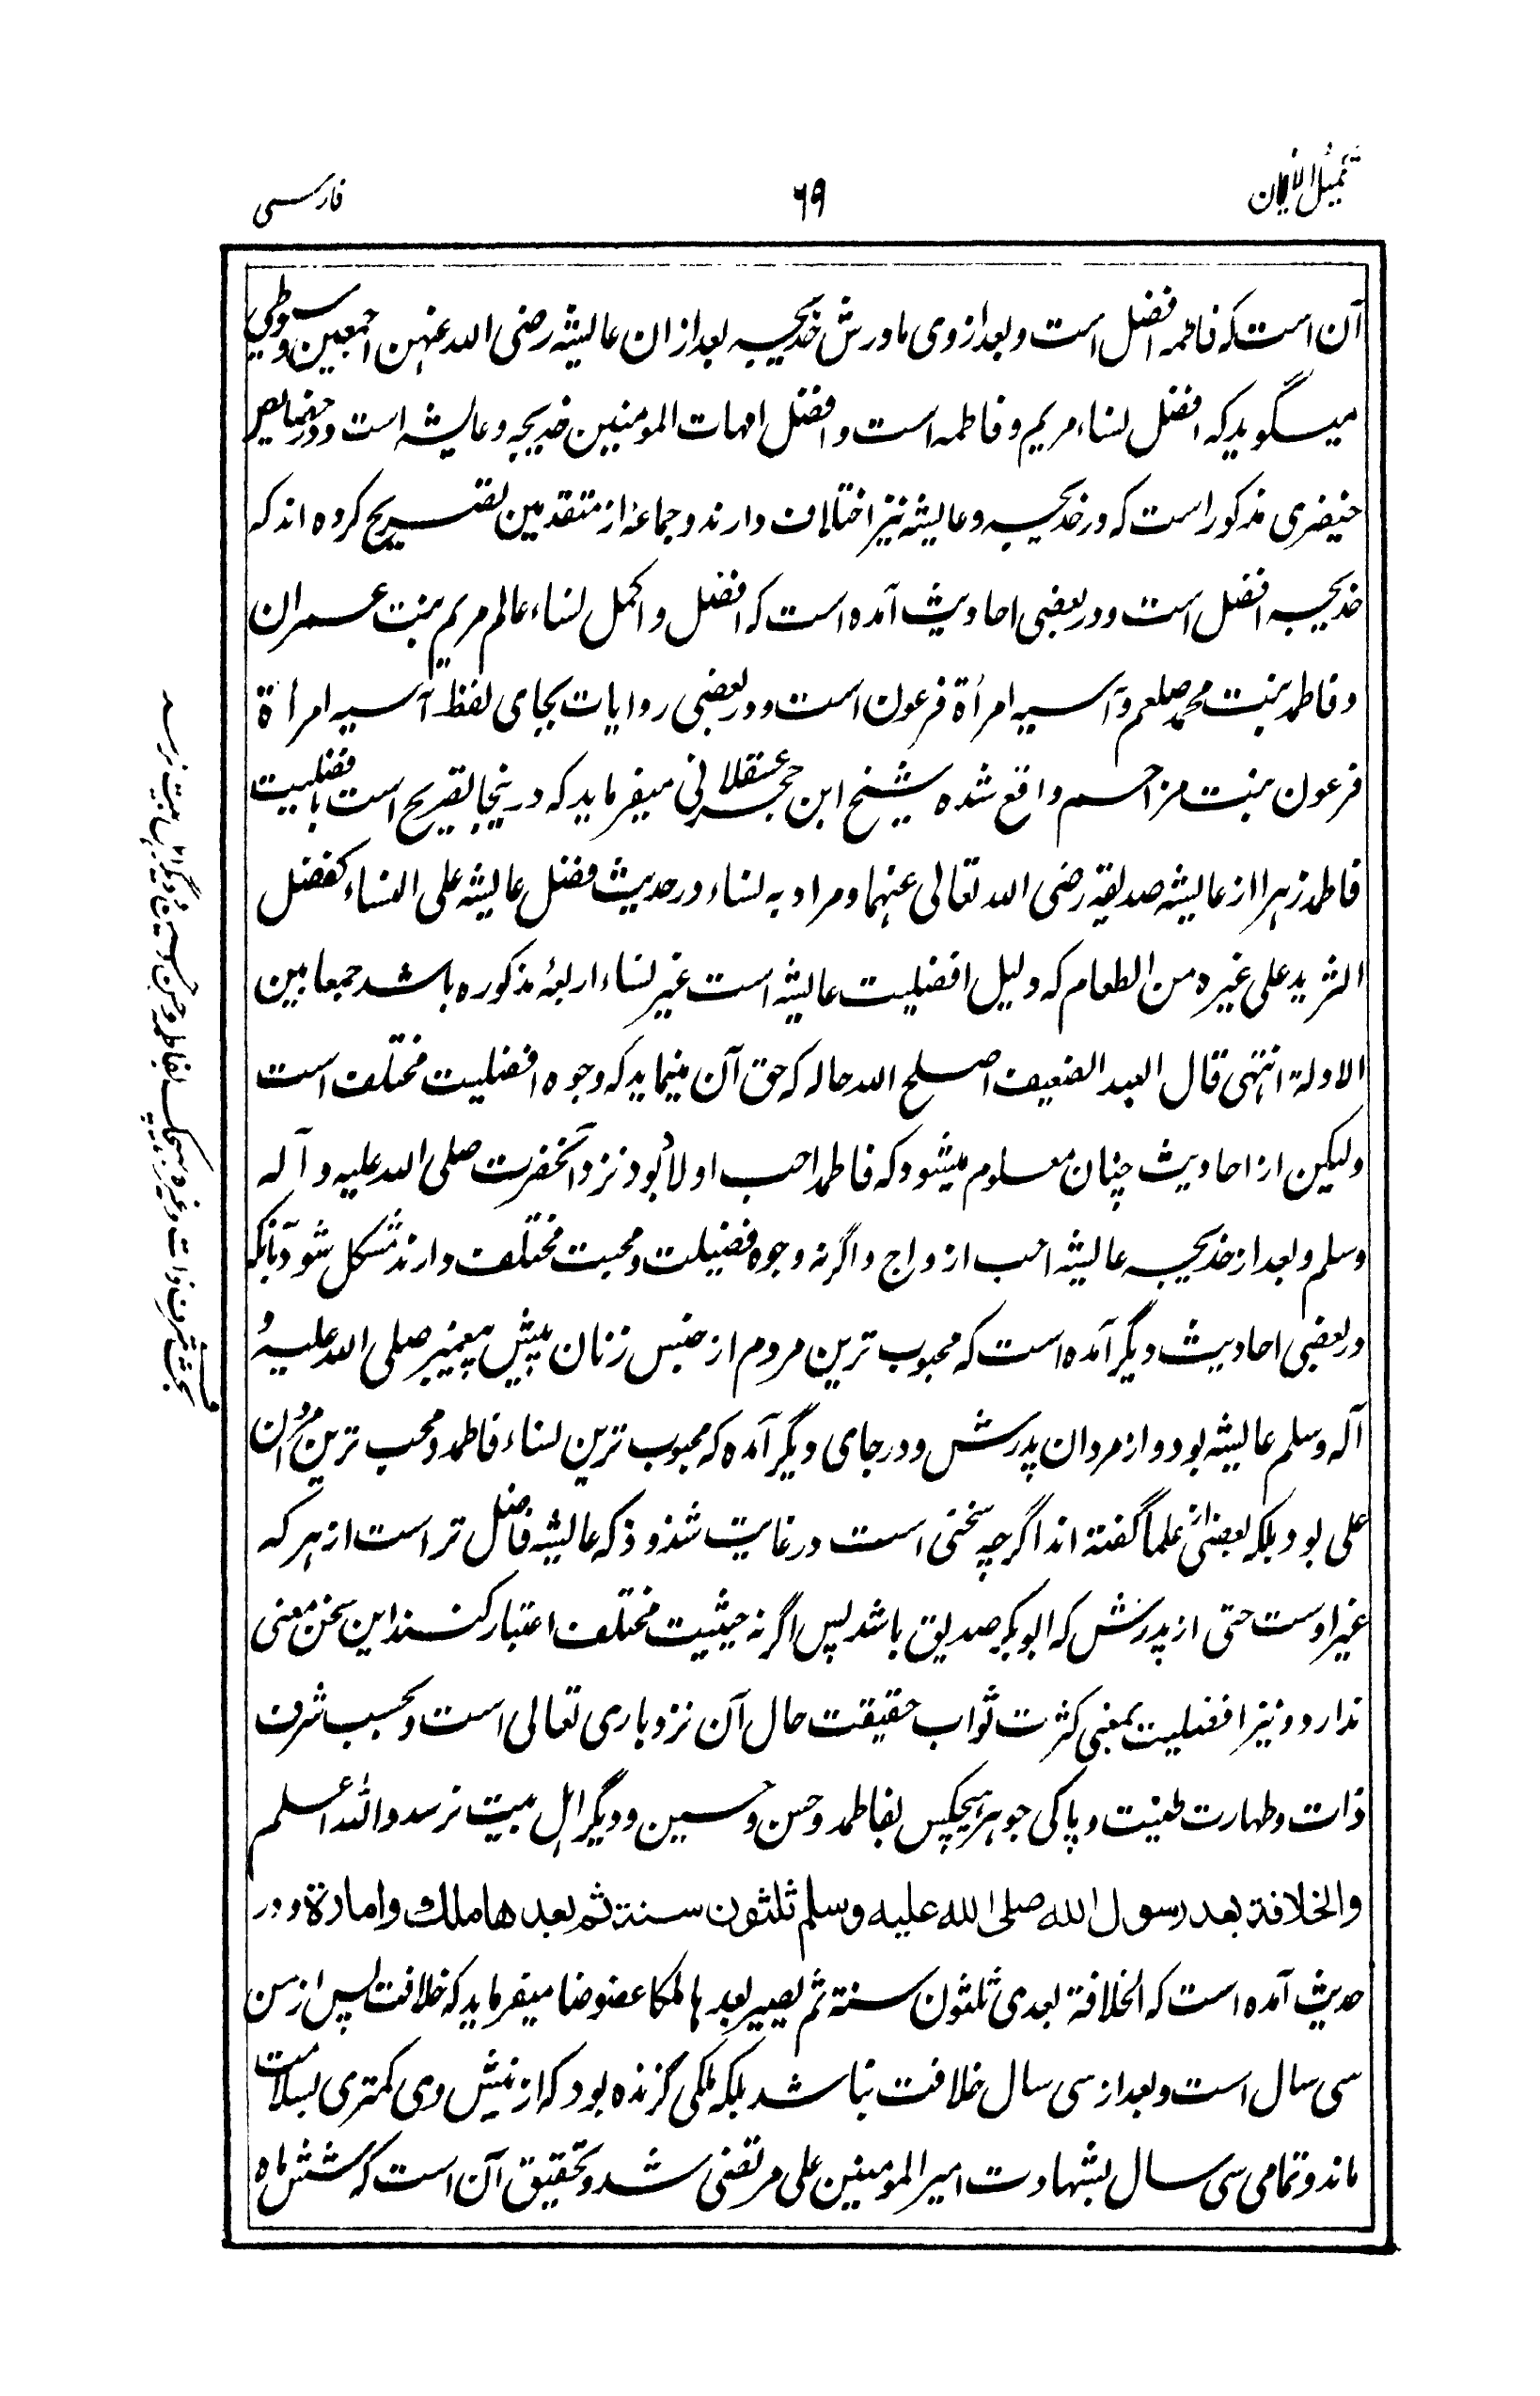 تکمیل الایمان
۶۹
فارسی
آن است که فاطمه افضل است و بعد ازوی مادرش خدیجه بعد ازان عایشه رضی الله عنهن اجمعین و سیوطی
میگوید که افضل نساء مریم و فاطمه است و افضل امهات المومنین خدیجه و عایشه است و در خصایص
خیضری مذکور است که در خدیجه و عایشه نیز اختلاف دارند و جماعه از متقدمین تصریح کرده اند که
خدیجه افضل است و در بعضی احادیث آمده است که افضل و اکمل نساء عالم مریم بنت عمران
و فاطمه بنت محمد صلعم و آسیه امرأة فرعون است و در بعضی روایات بجای لفظ آسیه امرأة
فرعون بنت مزاحم واقع شده شیخ ابن حجر عسقلانی میفرماید که درینجا تصریح است بافضلیت
فاطمه زهرا از عایشه صدیقه رضی الله تعالی عنهما و مراد به نساء در حدیث فضل عایشه علی النساء کفضل
الثرید علی غیره من الطعام که دلیل افضلیت عایشه است غیر نساء اربعهٔ مذکوره باشد جمعا بین
الادلة انتهی قال العبد الضعیف اصلح الله حاله که حق آن مینماید که وجوه افضلیت مختلف است
ولیکن از احادیث چنان معلوم میشود که فاطمه احب اولاد بود نزد آنحضرت صلی الله علیه و آله
وسلم و بعد از خدیجه عایشه احب ازواج و اگر نه وجوه فضیلت و محبت مختلف دارند مشکل شود بآنکه
در بعضی احادیث دیگر آمده است که محبوب ترین مردم از جنس زنان پیش پیغمبر صلی الله علیه و
آله وسلم عایشه بود و از مردان پدرش و در جای دیگر آمده که محبوب ترین نساء فاطمه و محب ترین مردان
علی بود بلکه بعضی از علما گفته اند اگرچه سخنی است در غایت شذوذ که عایشه فاضل تر است از هر که
غیر اوست حتی از پدرش که ابوبکر صدیق باشد پس اگر نه حیثیت مختلف اعتبار کنند این سخن معنی
ندارد و نیز افضلیت بمعنی کثرت ثواب حقیقت حال آن نزد باری تعالی است و بحسب شرف
ذات و طهارت طینت و پاکی جوهر هیچکس بفاطمه و حسن و حسین و دیگر اهل بیت نرسد والله اعلم
والخلافة بعد رسول الله صلی الله علیه وسلم ثلثون سنة ثم بعدها ملك وامارة و در
حدیث آمده است که الخلافة بعدی ثلثون سنة ثم یصیر بعدها ملکا عضوضا میفرماید که خلافت پس از من
سی سال است و بعد از سی سال خلافت نباشد بلکه ملکی گزنده بود که از نیش وی کمتری بسلامت
ماند و تمامی سی سال بشهادت امیر المومنین علی مرتضی شد و تحقیق آن است که شش ماه
بجهت شرف ذات و غیره هیچکس بفاطمه و حسن و حسین و دیگر اهل بیت نرسد